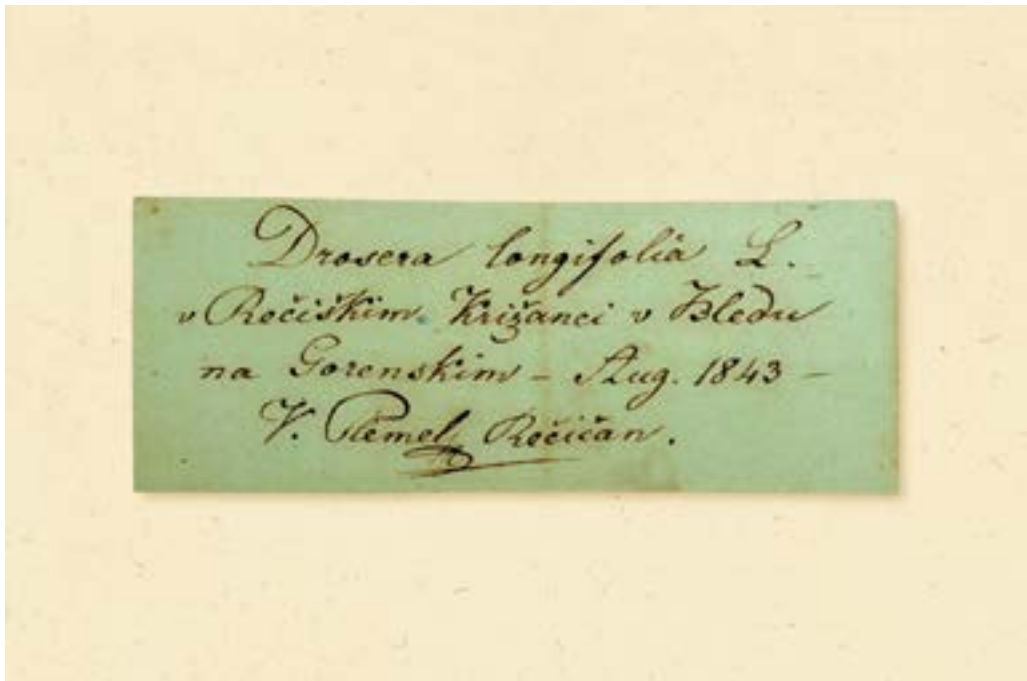 Drosera longifolia L.
v Ročiškim Križanci v Bledu
na Gorenskim – Aug. 1843 –
V. Plemel Ročičan.